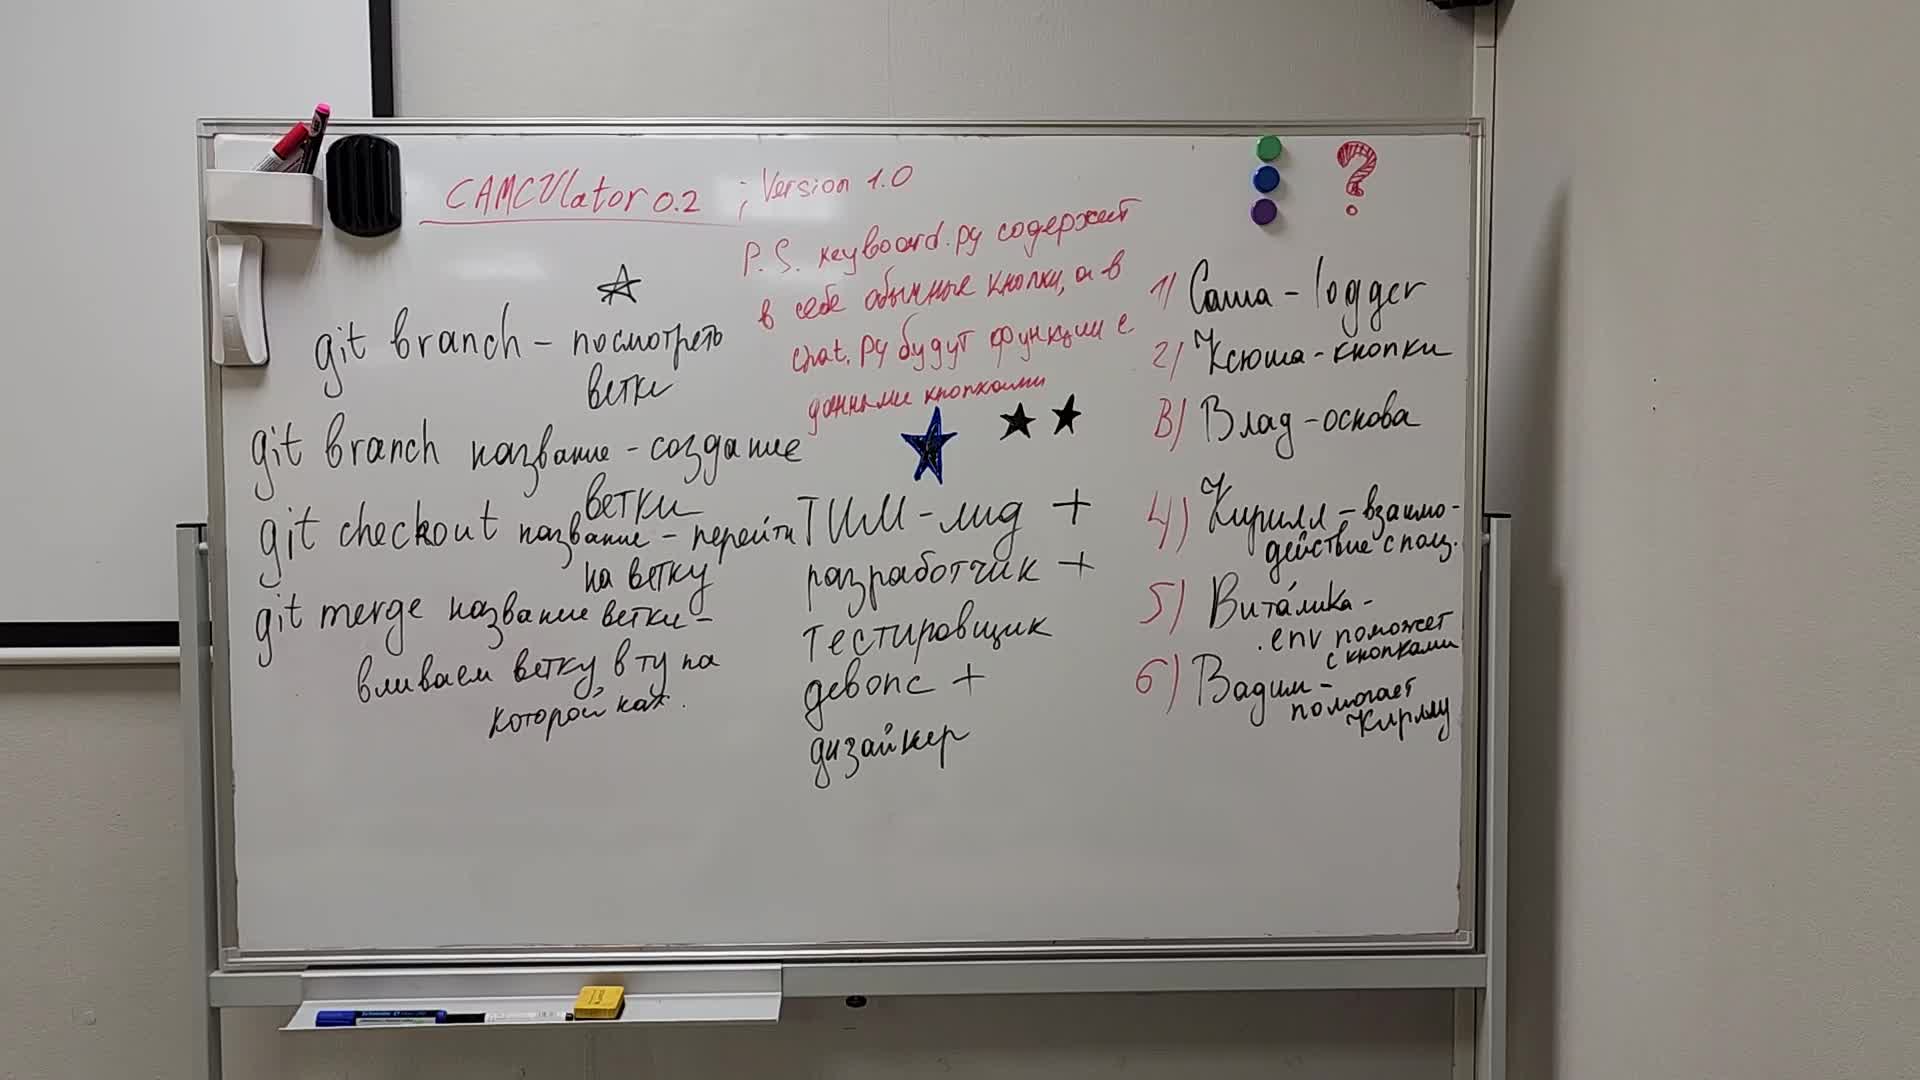 CAMCULator 0.2 ; Version 1.0
P.S. keyboard.py содержит
в себе обычные кнопки, а в
chat.py будут функции с
данными кнопками
git branch - посмотреть
ветки
git branch название - создание
ветки
git checkout название - перейти
на ветку
git merge название ветки -
вливаем ветку в ту на
которой нах.
ТИМ-лид +
разработчик +
тестировщик
девопс +
дизайнер
?
1) Саша - logger
2) Ксюша - кнопки
3) Влад - основа
4) Кирилл - взаимо-
действие с польз.
5) Вита́лика -
.env поможет
с кнопками
6) Вадим -
помогает
Кириллу